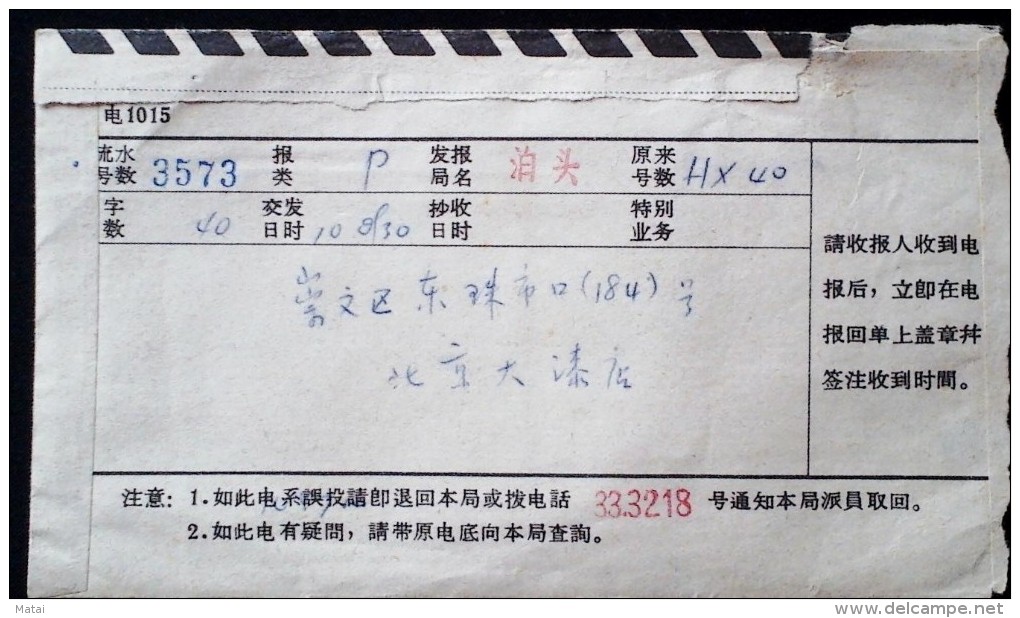 电1015
流水号数 3573 报类 P 发报局名 泊头 原来号数 HX 40
字数 40 交发日时 10 8/30 抄收日时 特别业务
崇文区东珠市口(184)号
北京大漆店
請收报人收到电
报后，立卽在电
报回单上盖章幷
签注收到时間。
注意：1.如此电系誤投請卽退回本局或拨电話 33.3218 号通知本局派員取回。
2.如此电有疑問，請带原电底向本局查詢。
Matai
delcampe.net